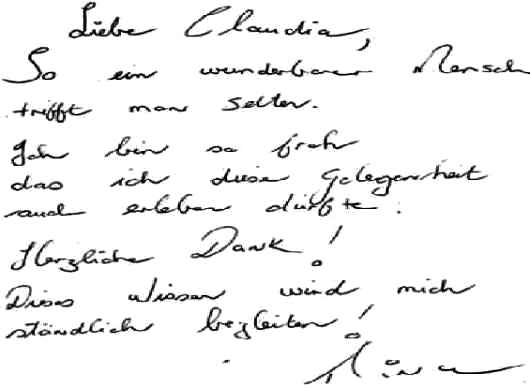 Liebe Claudia,
So ein wunderbarer Mensch
trifft man selten.
Ich bin so froh
das ich diese Gelegenheit
auch erleben dürfte.
Herzliche Dank!
Dieses Wissen wird mich
ständlich begleiten!